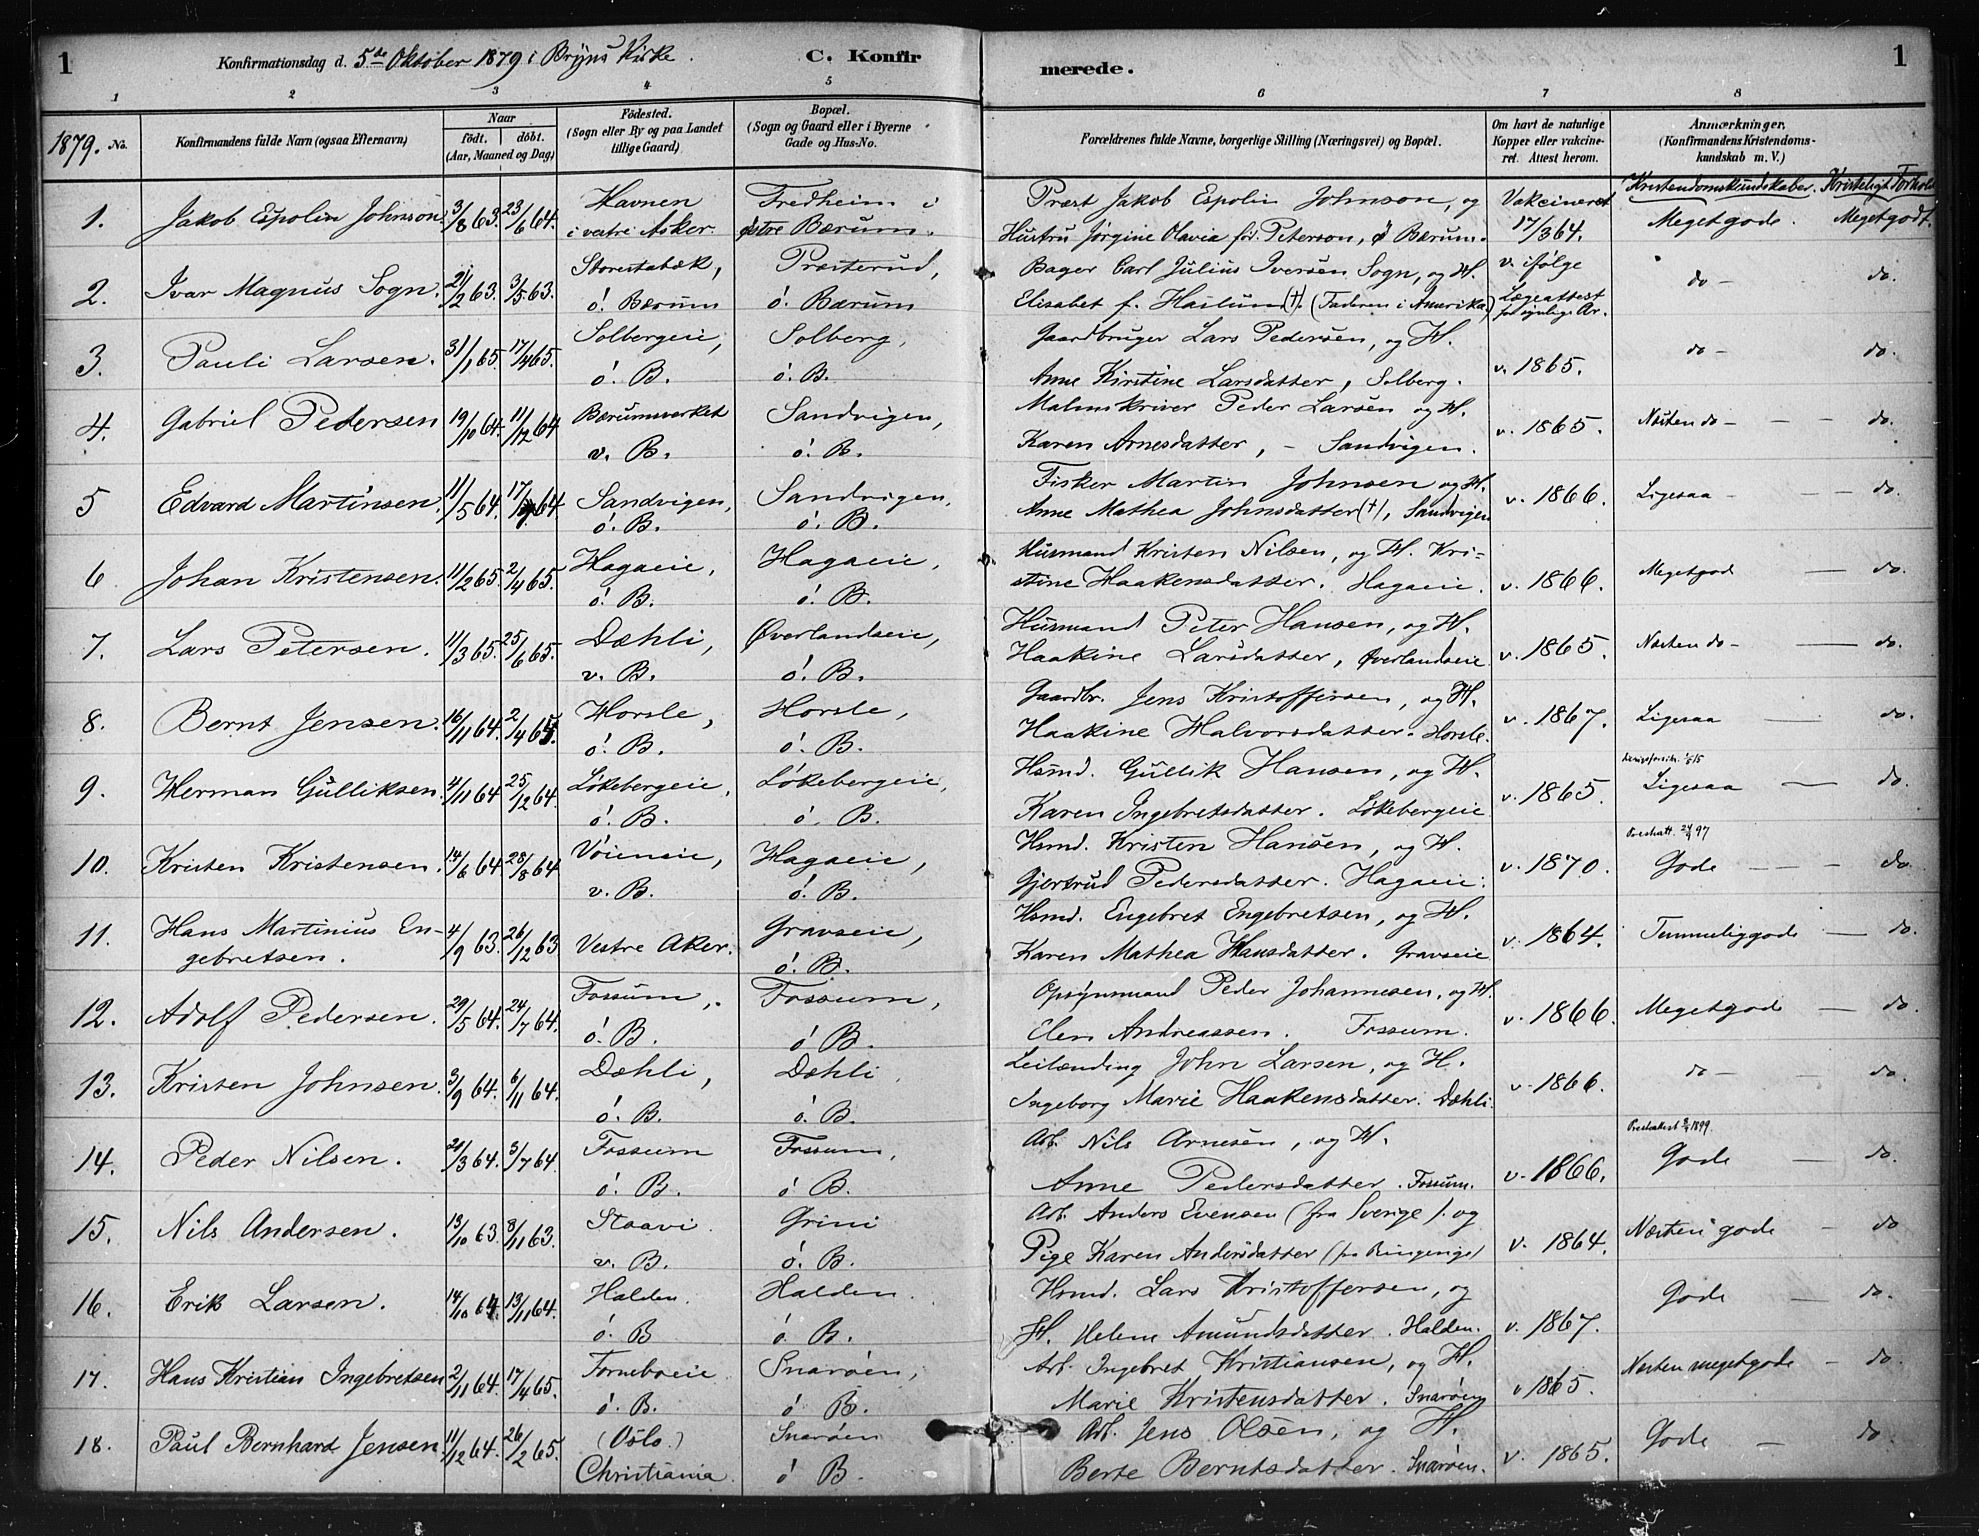 1 Konfirmationsdag d. 5te Oktober 1879 i Bryns Kirke. C. Konfirmerede. 1
1 2 3 4 5 6 7 8
1879. No. Konfirmandens fulde Navn (ogsaa Efternavn) Naar födt. döbt. (Aar, Maaned og Dag) Födested. (Sogn eller By og paa Landet tillige Gaard) Bopæl. (Sogn og Gaard eller i Byerne Gade og Hus-No. Forældrenes fulde Navne, borgerlige Stilling (Næringsvei) og Bopæl. Om havt de naturlige Kopper eller vakcineret. Attest herom. Anmærkninger, (Konfirmandens Kristendomskundskab m. V.)
Kristendomskundskaber. Kristeligt Forhold
1. Jakob Espolin Johnson 3/8 63. 23/6 64. Havnen Fredheim i Præst Jakob Espolin Johnson, og Vakcineret Megetgode. Megetgodt.
i vestre Asker. østre Bærum. Hustru Jørgine Olavia fød. Peterson, ø Bærum. 17/3 64.
2. Ivar Magnus Sogn. 21/2 63. 3/5 63. Storestabæk, Præsterud, Bager Carl Julius Iversen Sogn, og H. v. ifølge do - do.
ö. Bærum ö. Bærum Elisabet f. Haslum (†). (Faderen i Amerika.) Lægeattest
3. Pauli Larsen. 31/1 65. 17/4 65. Solbergeie, Solberg, Gaardbruger Lars Pedersen, og H. v. 1865. do - do.
ö. B. ö. B. Anne Kirstine Larsdatter, Solberg.
4. Gabriel Pedersen 19/10 64. 11/12 64 Bærumsverket Sandvigen, Malmskriver Peder Larsen og H. v. 1865. Næsten do - - - do.
v. B. ö. B. Karen Arnesdatter, - Sandvigen.
5 Edvard Martinsen. 11/5 64. 17/7 64. Sandvigen, Sandvigen, Fisker Martin Johnsen og H. v. 1866. Ligesaa - - - do.
ö. B. ö. B. Anne Mathea Johnsdatter (†), Sandvigen
6 Johan Kristensen. 11/2 65. 2/4 65. Hagaeie, Hagaeie, Husmand Kristen Nilsen, og H. Kri- v. 1866. Megetgod - do.
ö. B. ö. B. stine Haakensdatter. Hagaeie.
7. Lars Petersen. 11/3 65. 25/6 65. Dæhli, Øverlandseie, Husmand Peter Hansen, og H. v. 1865. Næsten do - - do.
v. B. ö. B. Haakine Larsdatter, Øverlandseie
8. Bernt Jensen. 16/11 64. 2/4 65. Horsle, Horsle, Gaardbr. Jens Kristoffersen, og H. v. 1867. Ligesaa - do.
ö. B. ö. B. Haakine Halvorsdatter. Horsle.
9. Herman Gulliksen. 4/11 64 25/12 64. Løkebergeie, Løkebergeie, Hsmd. Gullik Hansen, og H. v. 1865. Ligesaa - do.
ö. B. ö. B. Karen Ingebretsdatter. Løkebergeie
10. Kristen Kristensen. 14/6 64 28/8 64 Vöieneie, Hagaeie, Hsmd. Kristen Hansen, og H. v. 1870. Gode - - - do.
v. B. ö. B. Gjertrud Pedersdatter. Hagaeie.
11. Hans Martinius En- 4/9 63. 26/12 63 Vestre Aker. Gravseie, Hsmd. Engebret Engebretsen, og H. v. 1864. Temmeliggode - do.
gebretsen. ö. B. Karen Mathea Hansdatter. Gravseie
12. Adolf Pedersen. 29/5 64. 24/7 64. Fossum, Fossum, Opsynsmand Peder Johannesen, og H. v. 1866. Megetgode - do.
ö. B. ö B. Elen Andreassen. Fossum.
13. Kristen Johnsen. 3/9 64. 6/11 64. Dæhli, Dæhli, Leilænding John Larsen, og H. v. 1866. do - do.
ö. B. ö. B. Ingeborg Marie Haakensdatter. Dæhli.
14. Peder Nilsen. 20/3 64. 3/7 64. Fossum Fossum, Arb. Nils Arnesen, og H. v. 1866. Gode - do.
ö. B. ö B. Anne Pedersdatter. Fossum.
15. Nils Andersen. 13/10 63 8/11 63. Staavi. Grini Arb. Anders Evensen (fra Sverige). og v. 1864. Næsten gode - do
v. B. ö. B. Pige Karen Andersdatter
16. Erik Larsen. 14/10 64. 13/11 64. Halden. Halden. Hsmd. Lars Kristoffersen, og v. 1867. Gode - do.
ö. B ö. B. H. Helene Amundsdatter. Halden.
17. Hans Kristian Ingebretsen 2/11 64. 17/4 65. Forneboeie Snarøen, Arb. Ingebret Kristiansen, og H. v 1865. Næsten megetgode - do.
ö. B. ö B. Marie Kristensdatter. Snarøen
18. Paul Bernhard Jensen. 11/12 64. 26/2 65. (Oslo.) Snarøen Arb. Jens Olsen, og H. v. 1865. Gode - do.
Christiania. ö B. Berte Berntsdatter. Snarøen.